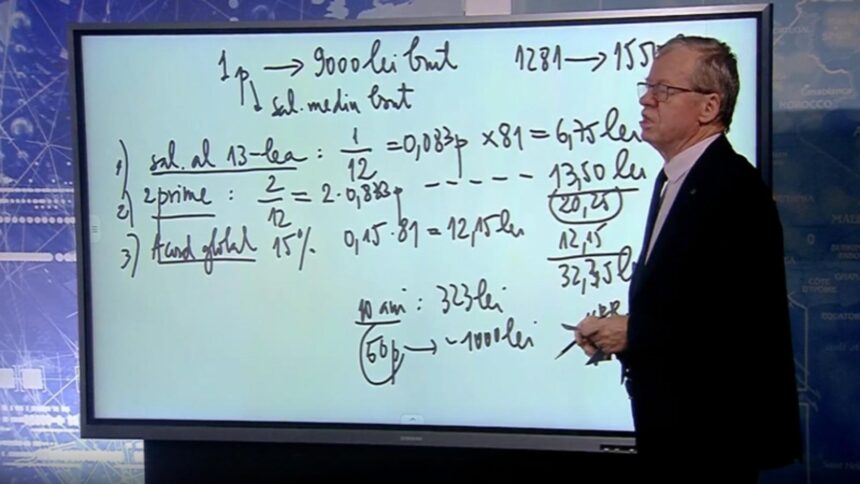 1p → 9000 lei brut 1281 → 155
sal. mediu brut
1) sal. al 13-lea : 1/12 = 0,083p × 81 = 6,75 lei
2) 2 prime : 2/12 = 2 · 0,833p - - - - - 13,50 lei
20,25
3) Acord global 15% 0,15 · 81 = 12,15 lei 12,15
32,35 le
10 ani : 323 lei
50p → ~1000 lei
SAMSUNG
Casablanca
MOROCCO